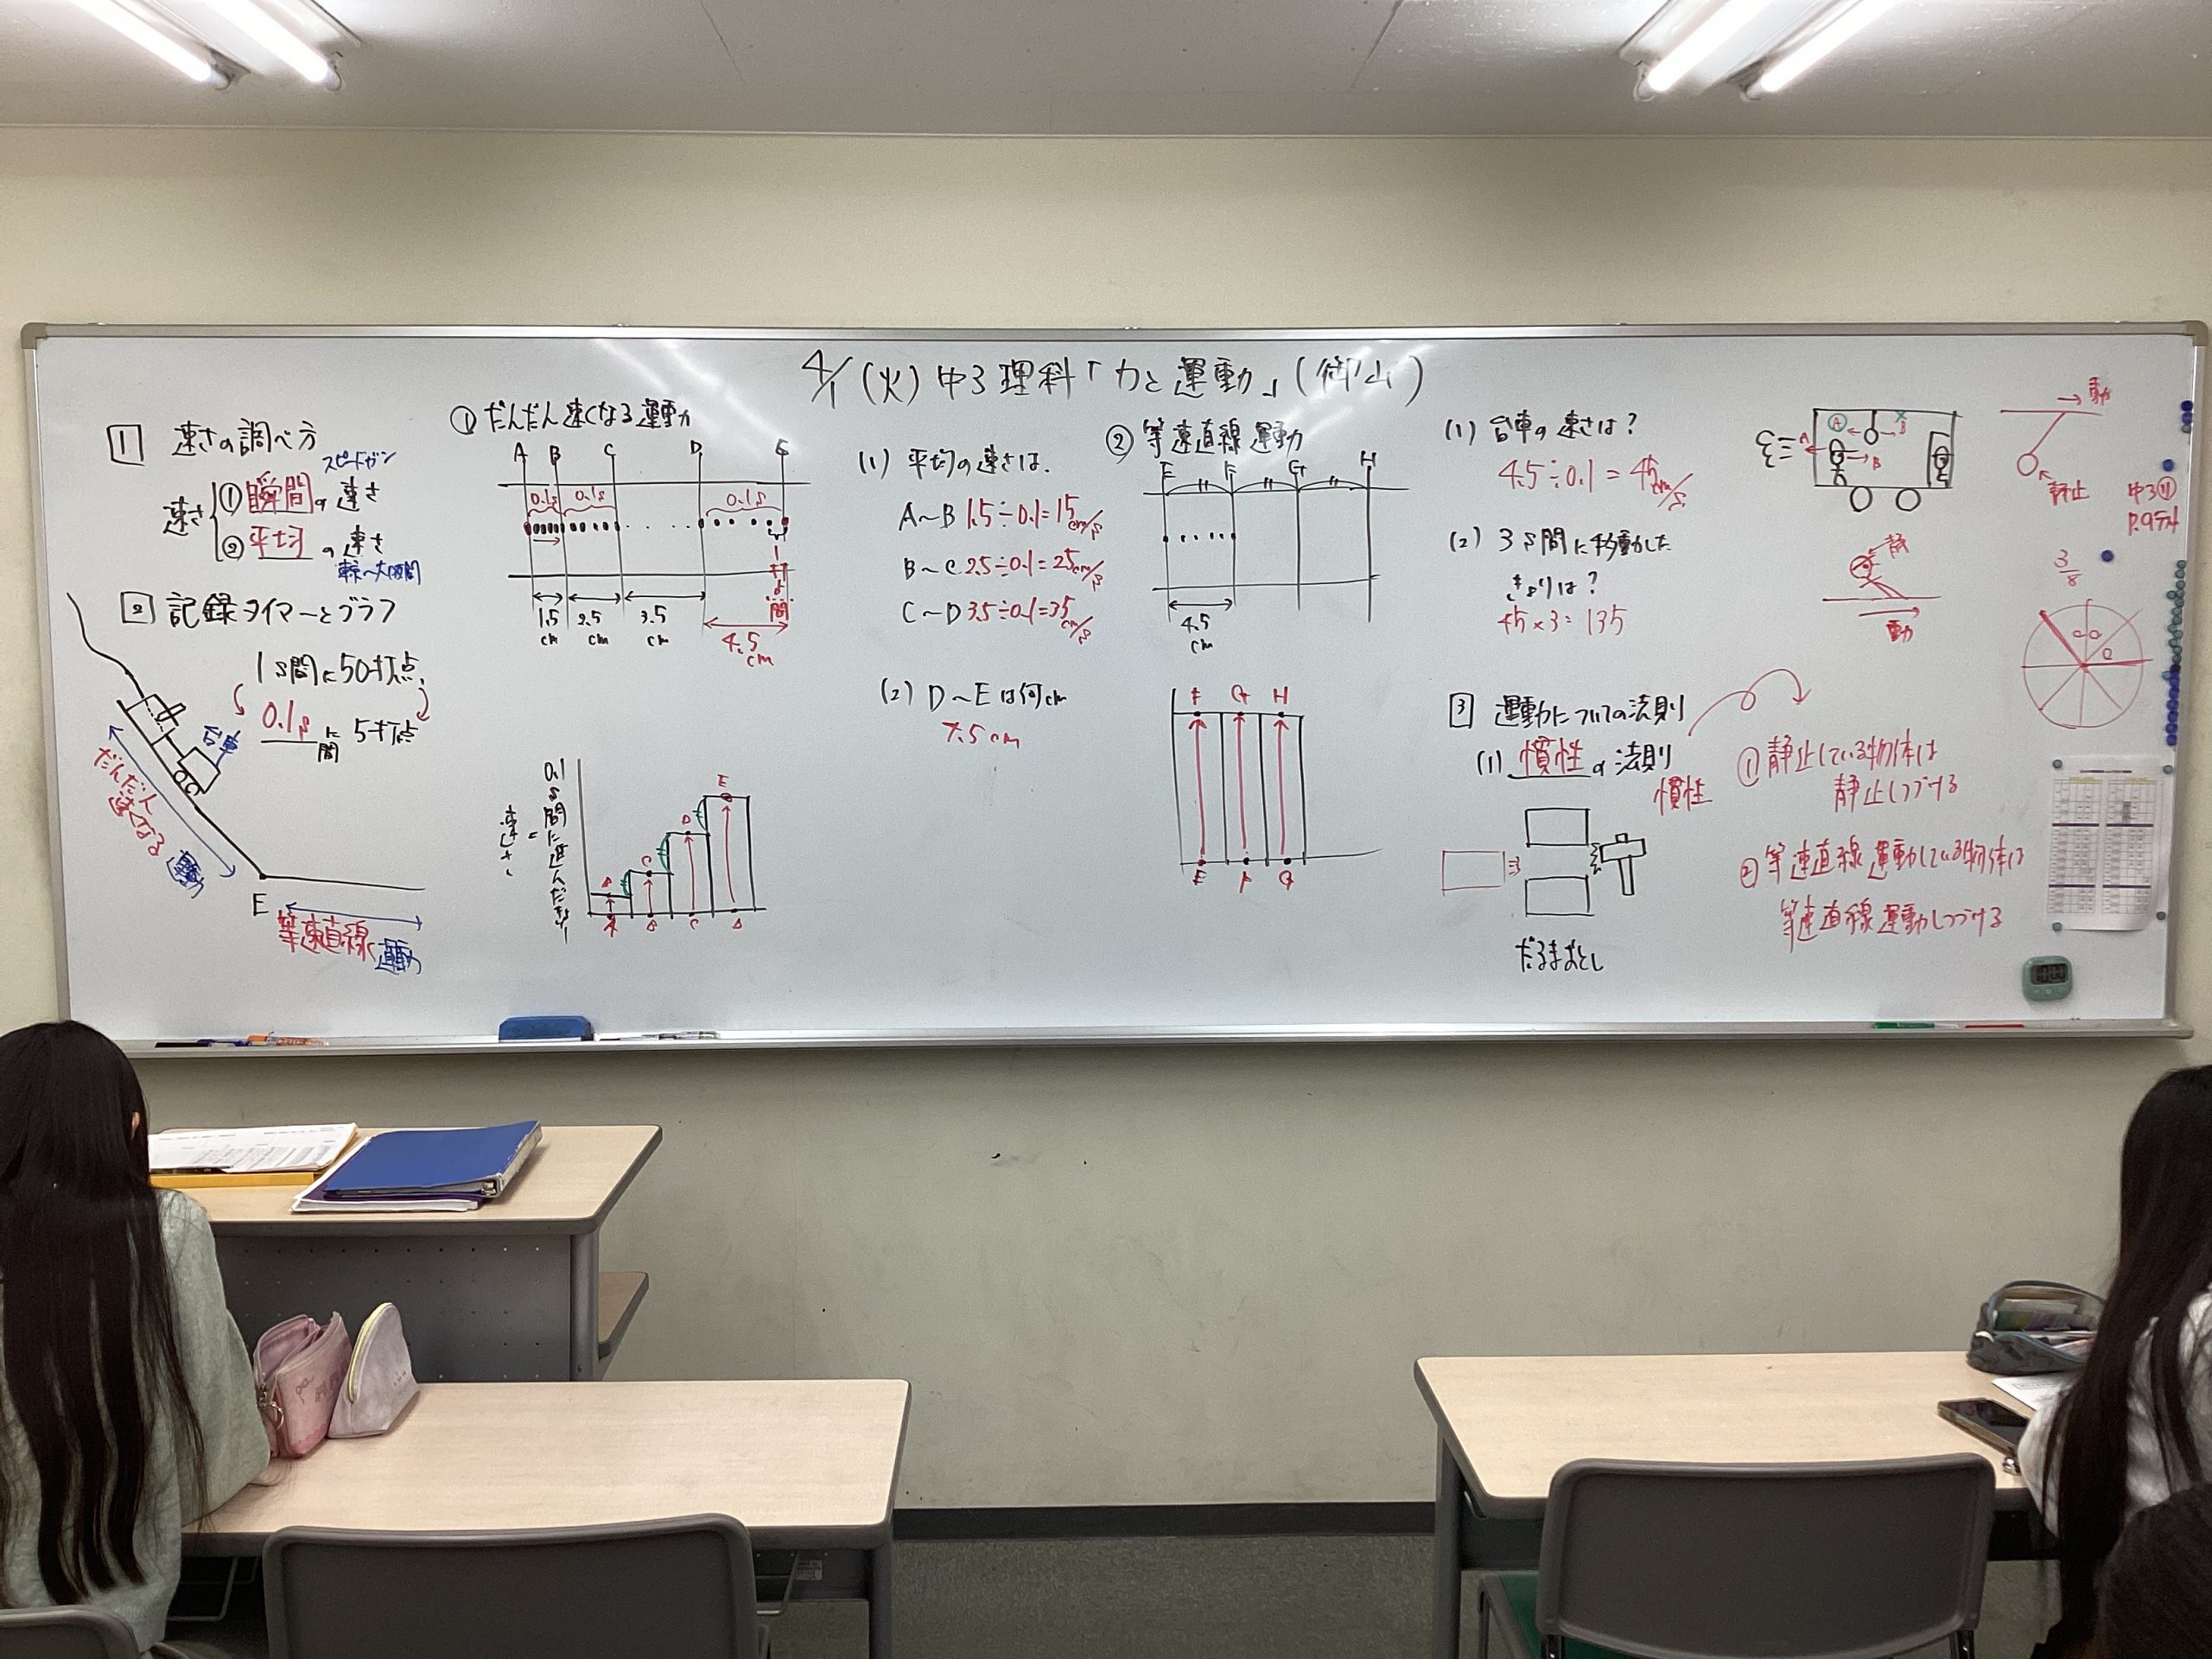 4/1(火)中3理科「力と運動」(御山)
1 速さの調べ方
スピードガン
速さ
①瞬間の速さ
②平均の速さ
東京〜大阪間
2 記録タイマーとグラフ
1s間に50打点
0.1s間に5打点
台車
だんだん
速くなる
運動
E
等速直線運動
①だんだん速くなる運動
A B C D E
0.1s 0.1s 0.1s
1打よ間
1.5cm 2.5cm 3.5cm
4.5cm
速さ=0.1s間に進んだきょり
A C D E
A B C D
(1) 平均の速さは.
A〜B 1.5÷0.1=15cm/s
B〜C 2.5÷0.1=25cm/s
C〜D 3.5÷0.1=35cm/s
(2) D〜Eは何cm
7.5cm
②等速直線運動
E F G H
4.5cm
F G H
E F G
(1) 台車の速さは?
4.5÷0.1=45cm/s
(2) 3s間に移動した
きょりは?
45×3=135
3 運動についての法則
(1) 慣性の法則
慣性
だるまおとし
①静止している物体は
静止しつづける
②等速直線運動している物体は
等速直線運動しつづける
A B
A B
動
静止
静
動
中3
3/8